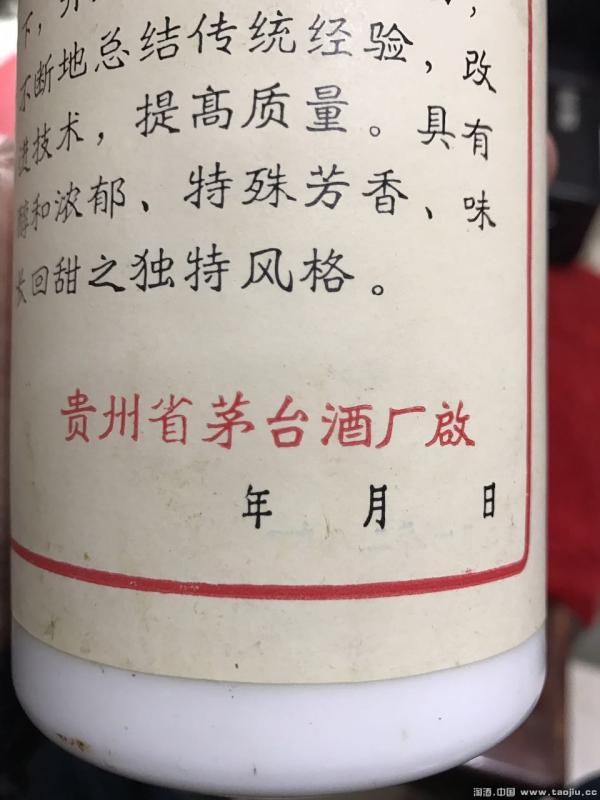 下，
不断地总结传统经验，改
进技术，提高质量。具有
醇和浓郁、特殊芳香、味
长回甜之独特风格。
贵州省茅台酒厂啟
年 月 日
淘酒.中国 www.taojiu.cc